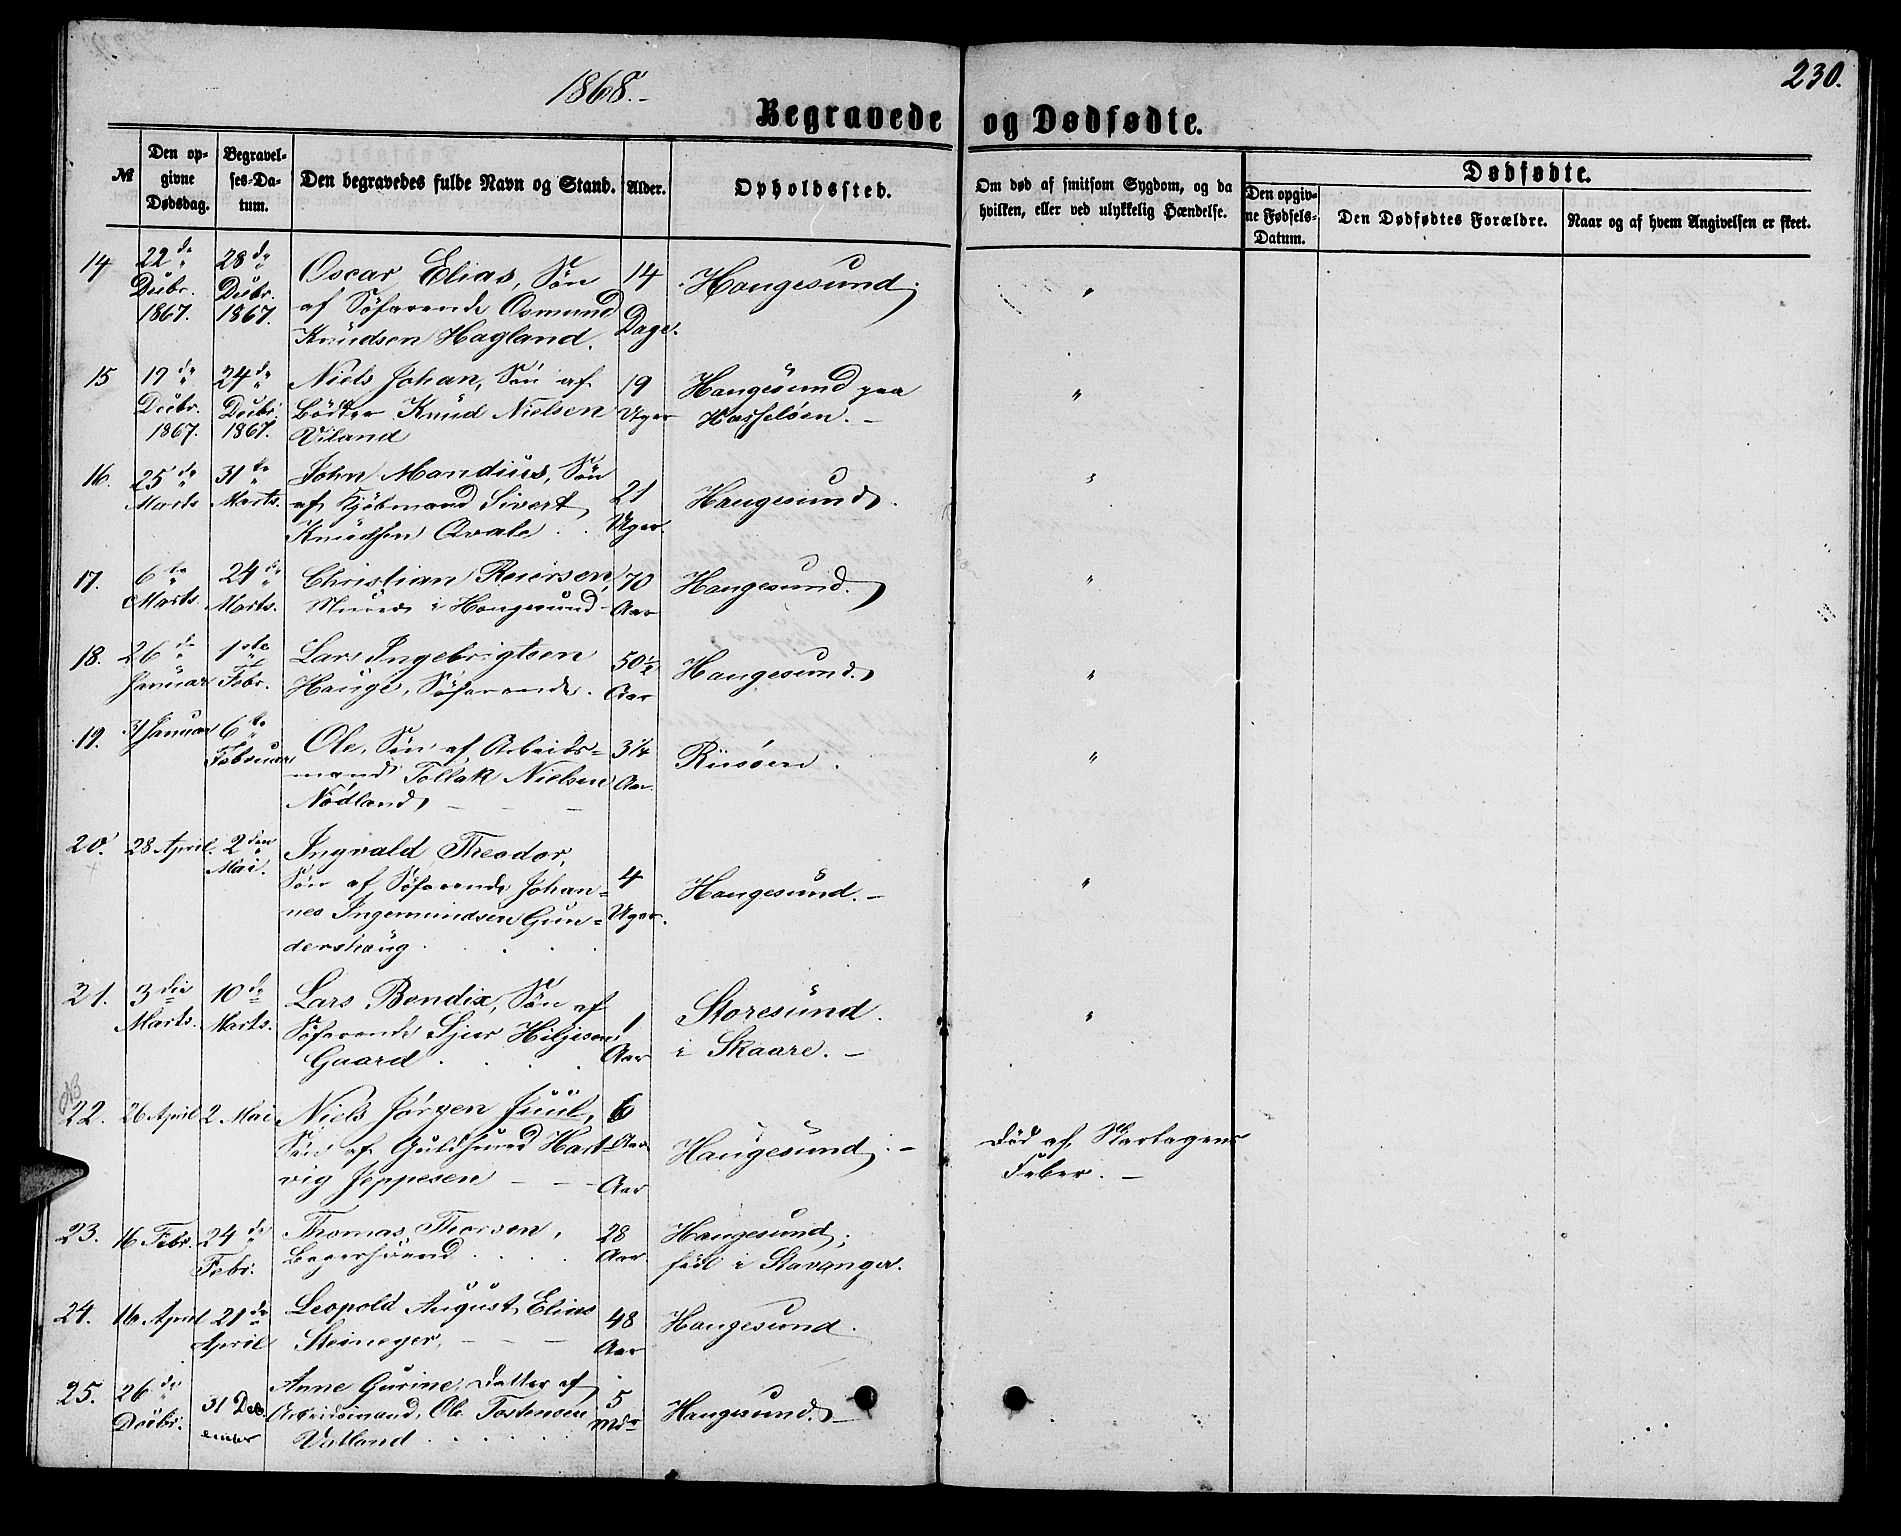 1868.-
230.
Begravede og Dødfødte.
№
Den opgivne Dødsdag.
Begravelses-Datum.
Den begravedes fulde Navn og Stand.
Alder.
Opholdssted.
Om død af smitsom Sygdom, og da hvilken, eller ved ulykkelig Hændelse.
Dødfødte.
Den opgivne Fødsels-Datum.
Den Dødfødtes Forældre.
Naar og af hvem Angivelsen er skeet.
14 22de Decbr. 1867. 28de Decbr. 1867. Oscar Elias, Søn 14 Dage. Haugesund. "
af Søfarende Osmund
Knudsen Hagland.
15 19de Decbr. 1867. 24de Decbr. 1867. Niels Johan, Søn af 19 Uger Haugesund paa "
Bødker Knud Nielsen Hasseløen.-
Viland
16. 25de Marts 31te Marts. John Mandius, Søn 21 Uger. Haugesund. "
af Kjøbmand Sivert
Knudsen Qvale . .
17. 6te Marts. 24de Marts. Christian Reiersen, 70 Aar Haugesund. "
Murer i Haugesund
18. 26de Januar 1ste Febr. Lars Ingebrigtsen 50½ Aar Haugesund. "
Hauge, Søfarende.
19. 31 Januar 6te Februar Ole, Søn af Arbeids- 3¼ Aar Risøen. "
mand Tollak Nielsen
Nødland, - - -
20. 28 April. 2den Mai. Ingvald Theodor, 4 Uger. Haugesund.- "
Søn af Søfarende Johan-
nes Ingemundsen Gun-
dershaug . . . .
21. 3die Marts. 10de Marts. Lars Bendix, Søn af 1 Aar Storesund. "
Søfarende Sjur Hiljesen i Skaare.-
Gaard . . . .
22. 26 April 2. Mai Niels Jørgen Juul, 6 Aar Haugesund.- Død af Skarlagens
Søn af Guldsmed Hart- Feber.-
vig Jeppesen - - - Aar
23. 16 Febr. 24de Febr. Thomas Thorsen, 28 Aar. Haugesund;
Bagersvend . . . . født i Stavanger.
24. 16 April 21de April Leopold August Elias 48 Aar Haugesund.
Steineger, - - -
25. 26de Decbr. 31 December Anne Gurine, Datter af 5 Mdr Haugesund.-
Arbeidsmand, Ole Tostensen
Vatland . . . . . .